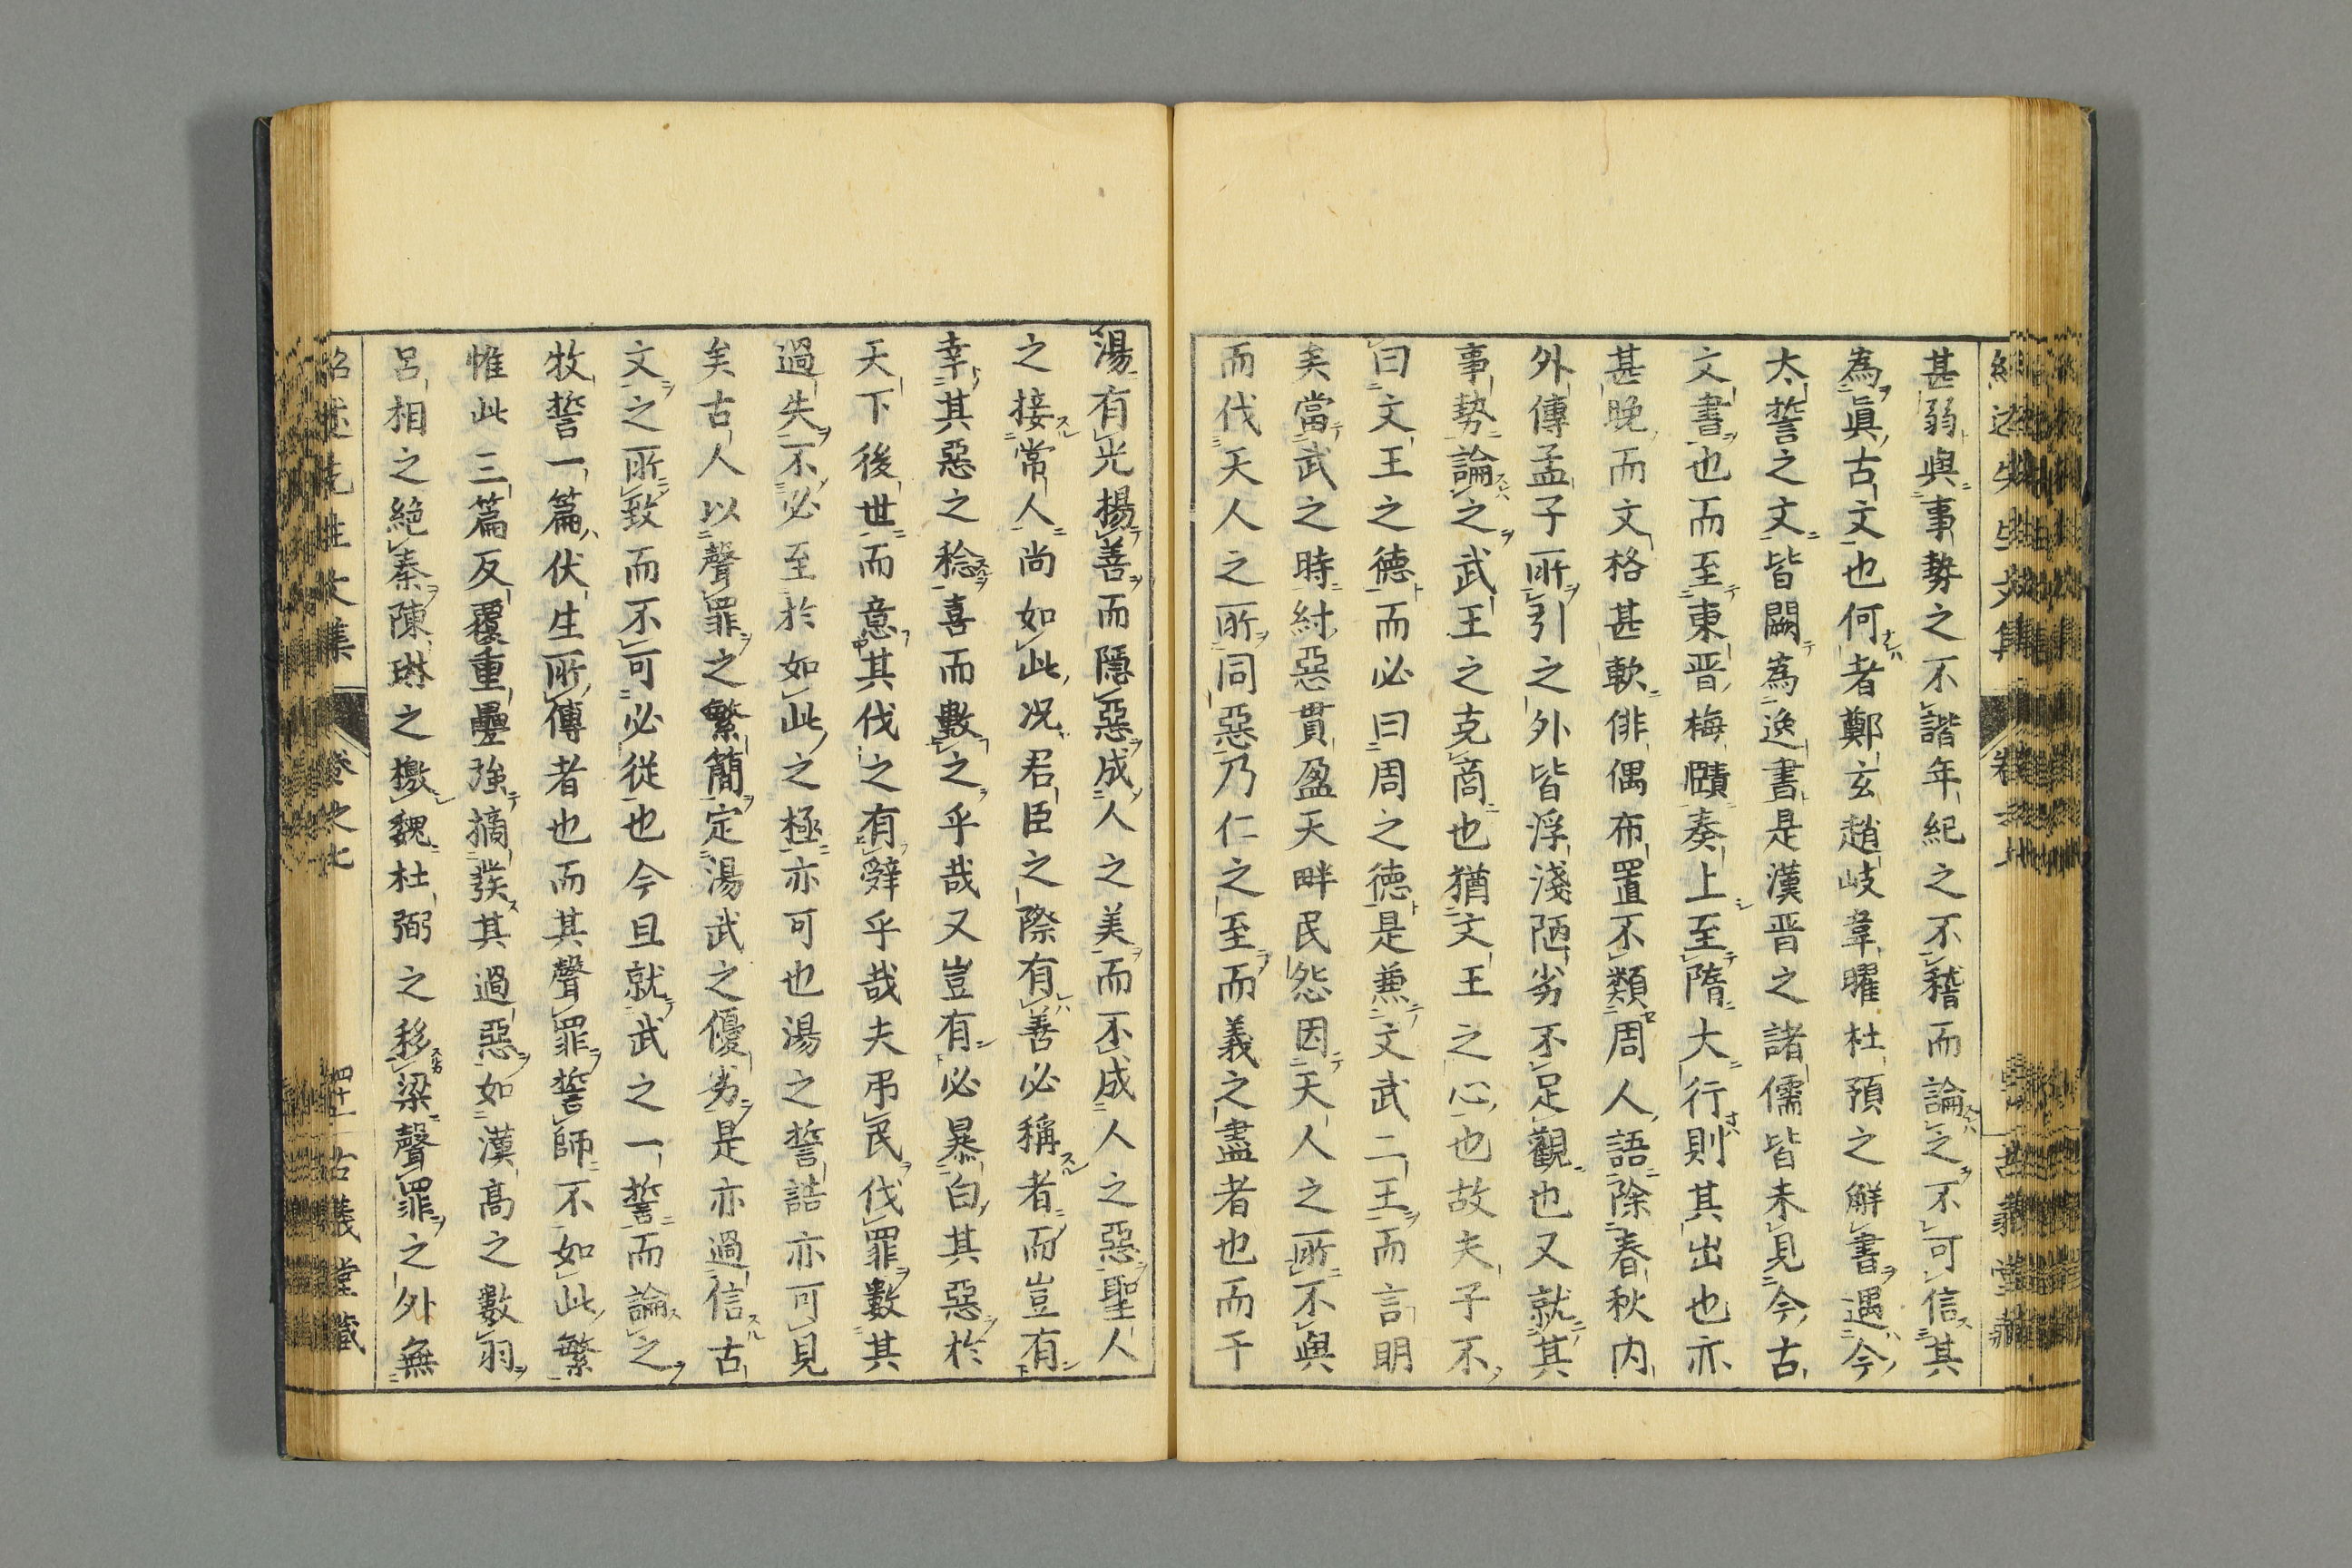 甚弱與事勢之不諧年紀之不稽而論之不可信其
為眞古文也何者鄭玄趙岐韋曜杜預之解書遇今
太誓之文皆闕為逸書是漢晋之諸儒皆未見今古
文書也而至東晋梅賾奏上至隋大行則其出也亦
甚晚而文格甚軟俳偶布置不類周人語除春秋内
外傳孟子所引之外皆浮淺陋劣不足觀也又就其
事勢論之武王之克商也猶文王之心也故夫子不
曰文王之德而必曰周之德是兼文武二王而言明
矣當武之時紂惡貫盈天畔民怨因天人之所不與
而伐天人之所同惡乃仁之至而義之盡者也而干
湯有光揚善而隱惡成人之美而不成人之惡聖人
之接常人尚如此况君臣之際有善必稱者而豈有
幸其惡之稔喜而數之乎哉又豈有必暴白其惡於
天下後世而意其伐之有辭乎哉夫弔民伐罪數其
過失不必至於如此之極亦可也湯之誓誥亦可見
矣古人以聲罪之繁簡定湯武之優劣是亦過信古
文之所致而不可必從也今且就武之一誓而論之
牧誓一篇伏生所傳者也而其聲罪誓師不如此繁
惟此三篇反覆重疊強摘發其過惡如漢高之數羽
呂相之絶秦陳琳之檄魏杜弼之移梁聲罪之外無
紹述先生文集 卷之七 四十一 古義堂藏